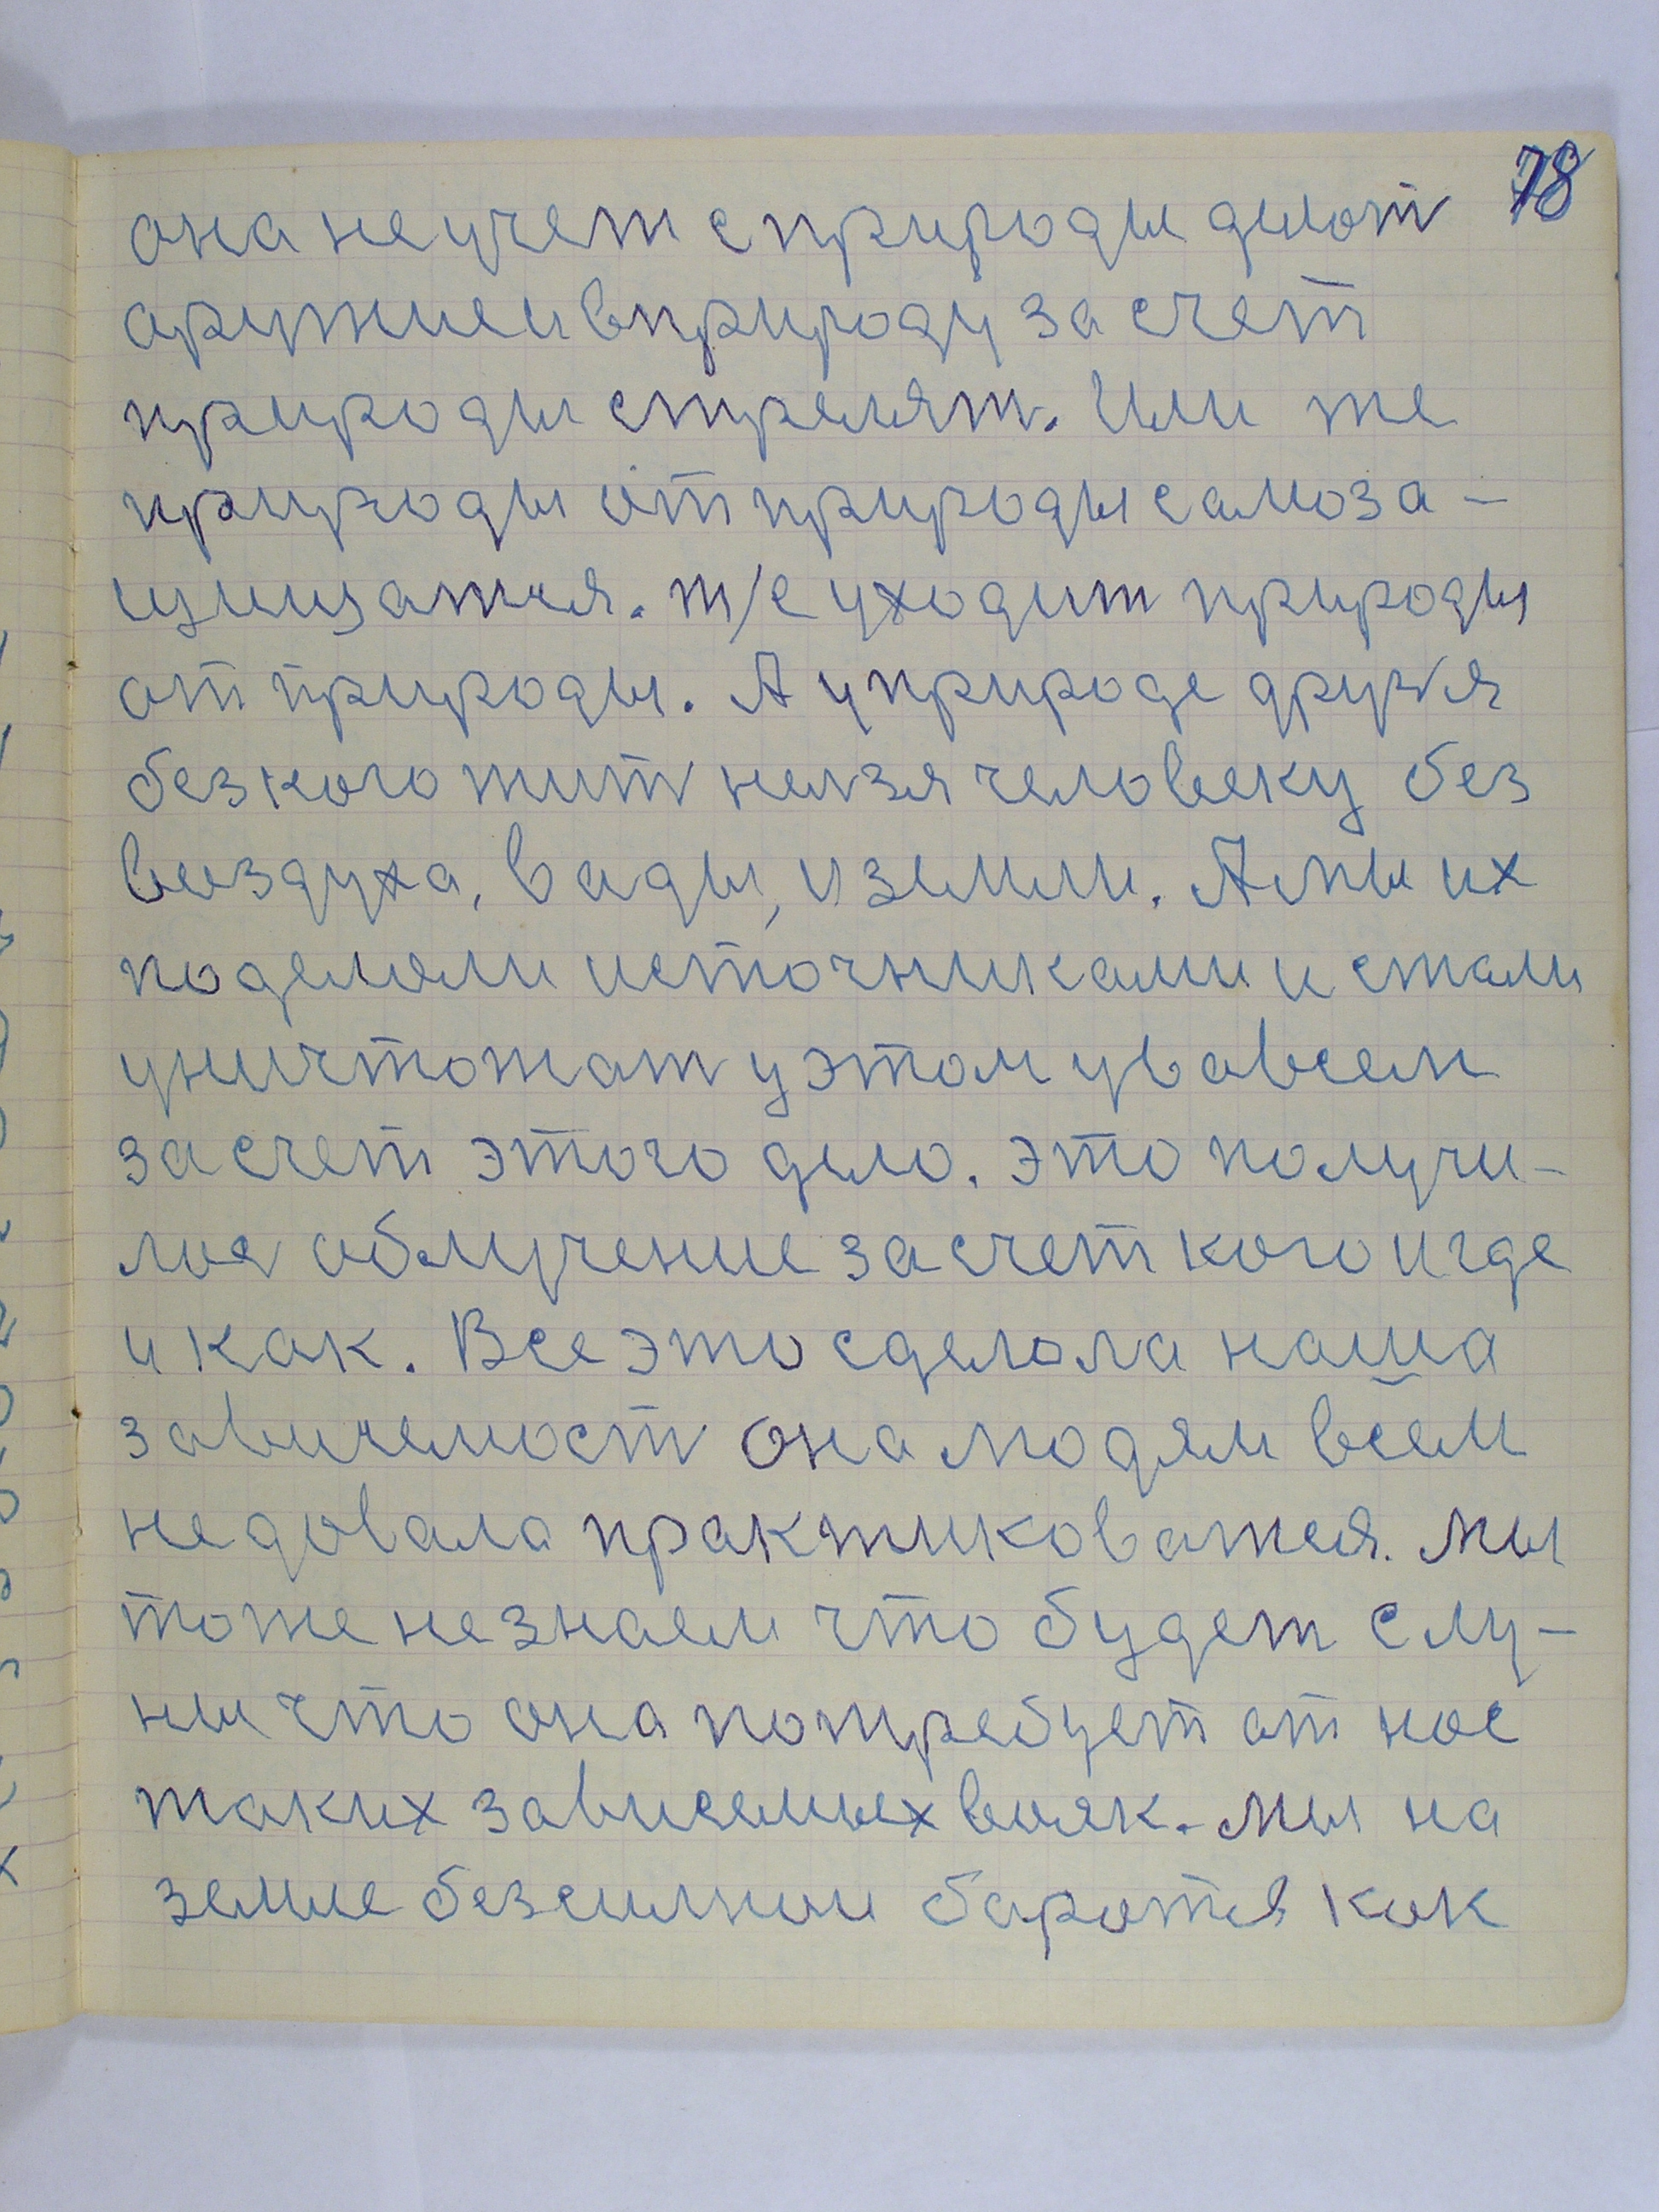 78
она не учет с природы делот
аружие и в природу за счет
природы стрелят. Или же
природы от природы самоза-
щищатся. т/е уходит природы
от природы. А у природе друзя
без кого жит нелзя человеку без
воздуха, вады, и земли. А мы их
поделали источниками и стали
уничтожат у этом у во всем
за счет этого дело. это получи-
лос облучение за счет кого и где
и как. Все это сделола наша
зависемост она людям всем
не довала практиковатся. мы
тоже не знаем что будет с лу-
ны что она потребует от нос
таких зависемых вояк. мы на
земле безсилнои баротся как